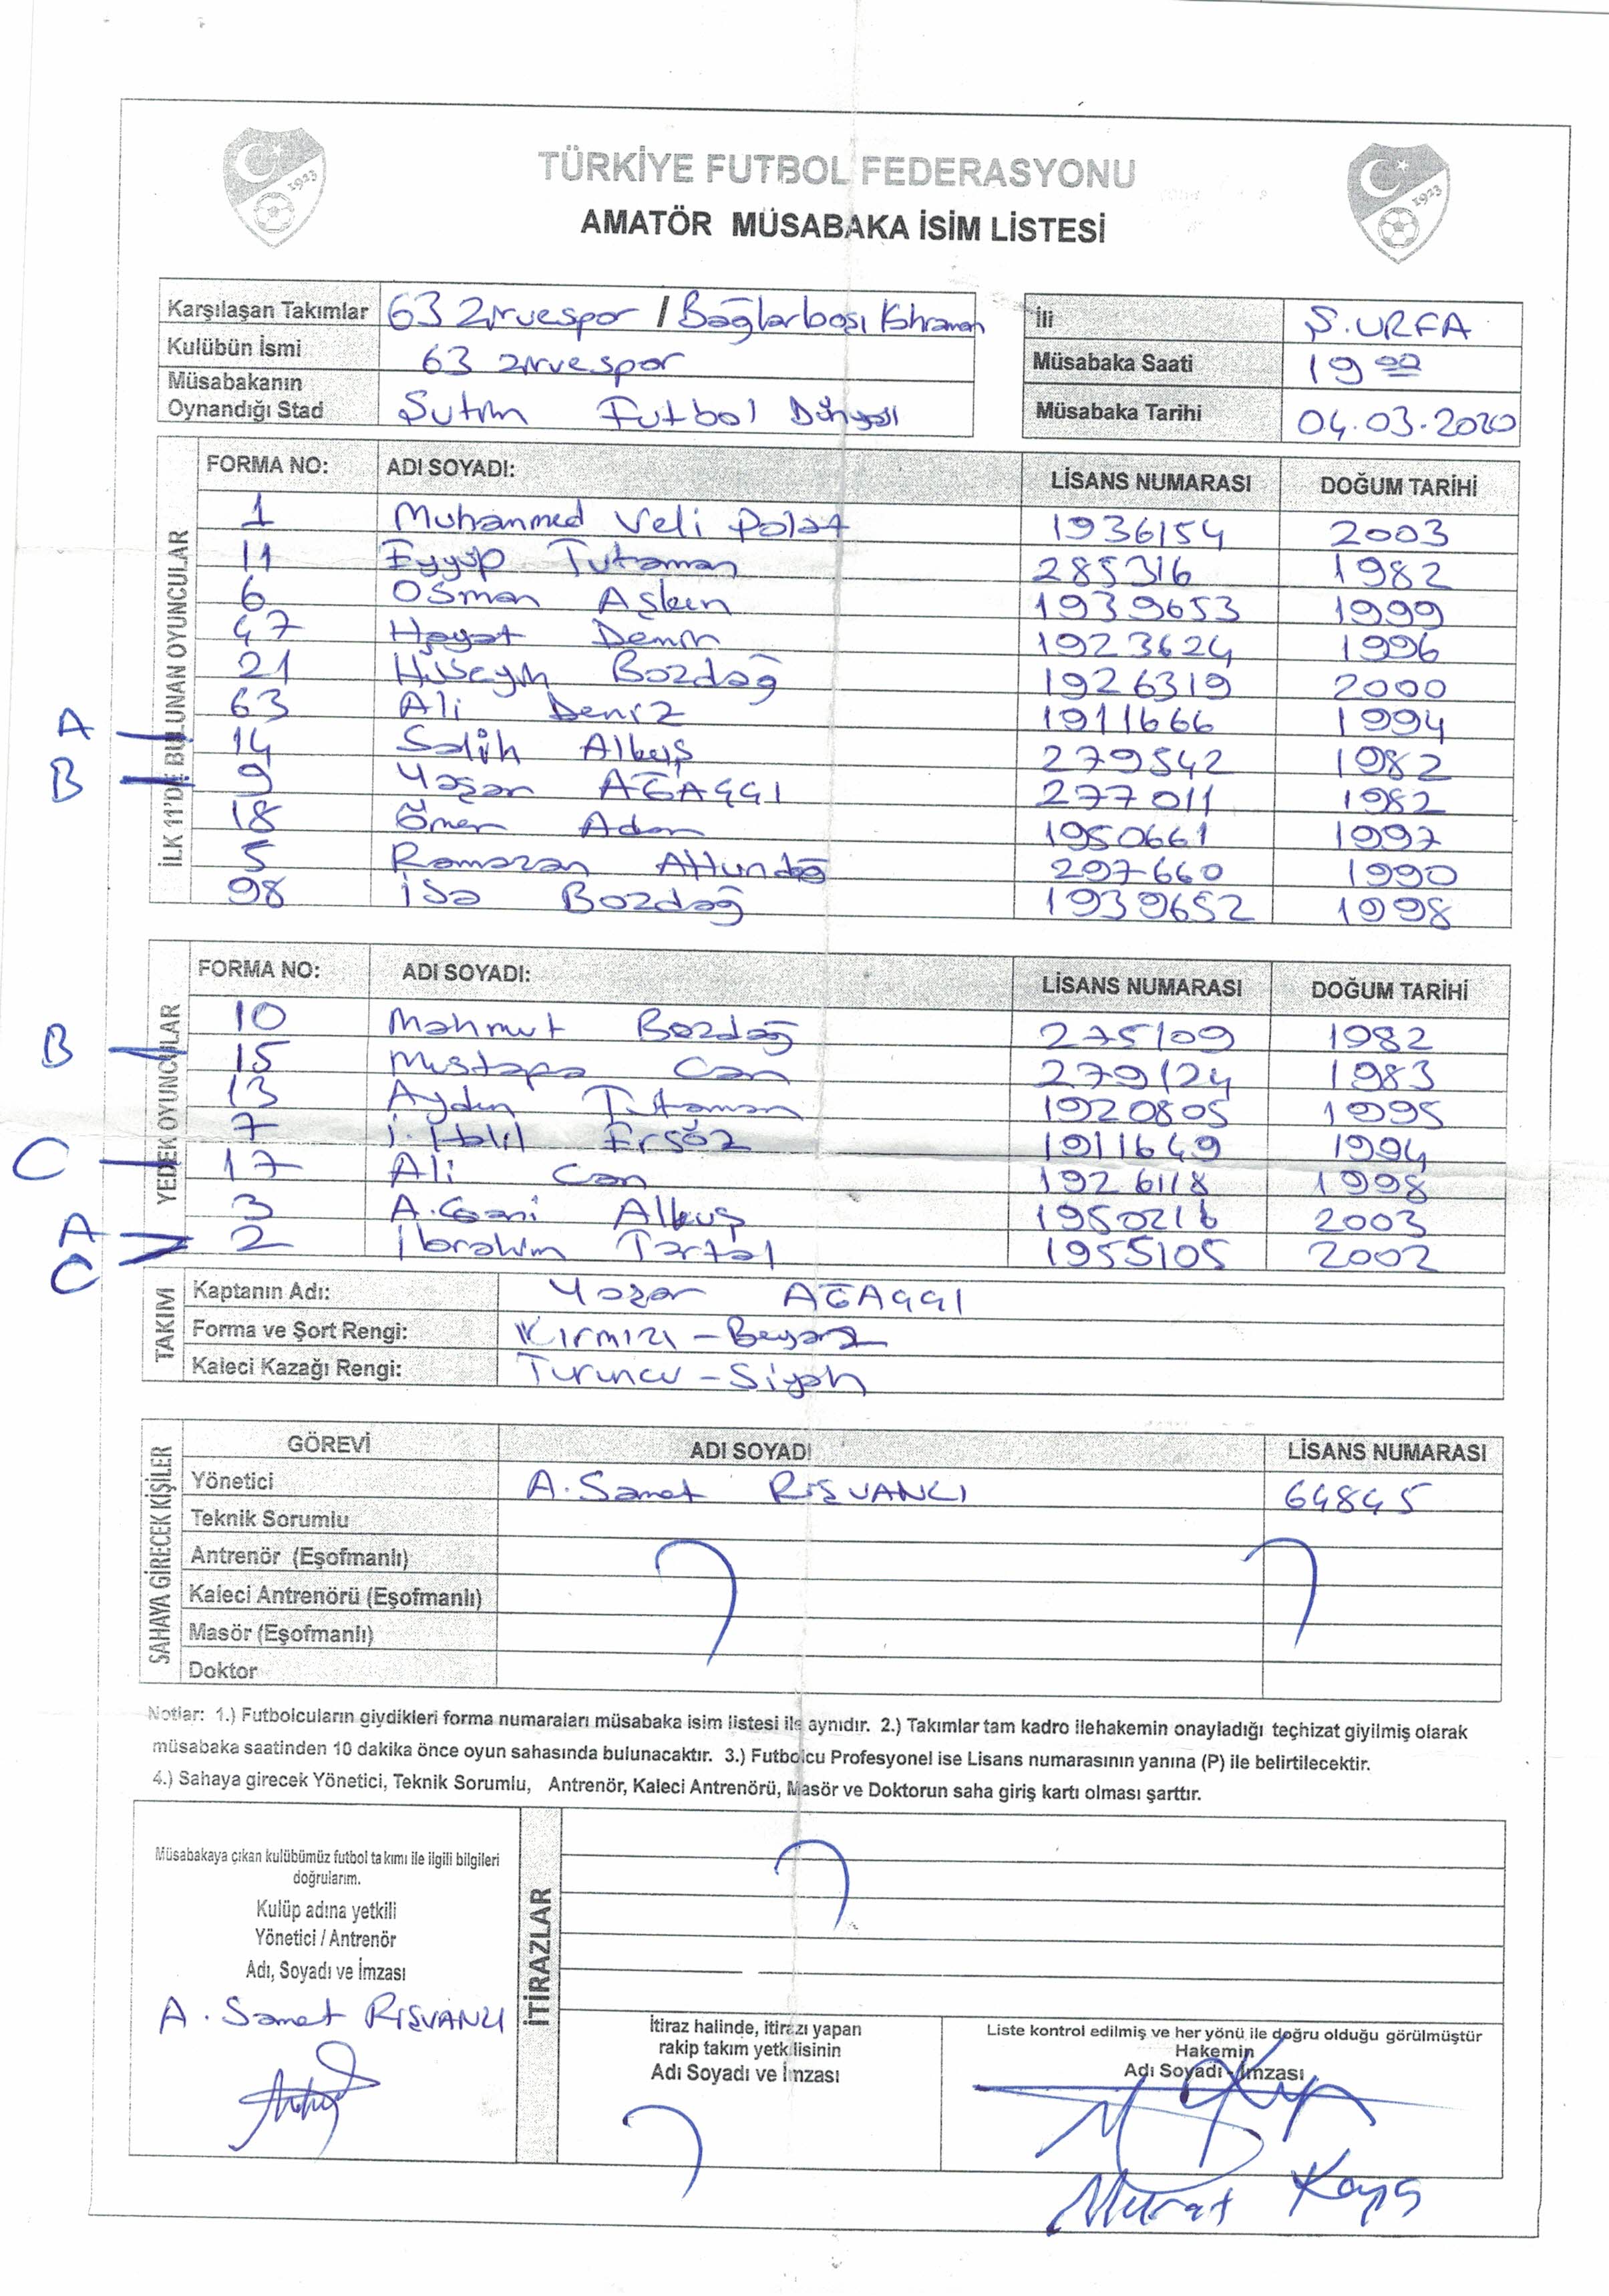 TÜRKİYE FUTBOL FEDERASYONU
AMATÖR MÜSABAKA İSİM LİSTESİ
1923
1923
Karşılaşan Takımlar 63 Zirvespor / Bağlarbaşı Kahraman
İli Ş.URFA
Kulübün İsmi 63 zirvespor
Müsabaka Saati 19 00
Müsabakanın Oynandığı Stad Futbol Dünyası
Müsabaka Tarihi 04.03.2020
İLK 11'DE BULUNAN OYUNCULAR
FORMA NO: ADI SOYADI: LİSANS NUMARASI DOĞUM TARİHİ
1 Muhammed Veli Polat 1936154 2003
11 Eyyüp Tutaman 285316 1982
6 Osman Aşkın 1939653 1999
47 Hayat Demir 1923624 1996
21 Hüseyin Bozdağ 1926319 2000
63 Ali Deniz 1911666 1994
A 14 Salih Alkış 279542 1982
B 9 Yaşar AĞAÇÇI 277011 1982
18 Ömer Adam 1950661 1997
5 Ramazan Altundağ 297660 1990
98 İsa Bozdağ 1939652 1998
YEDEK OYUNCULAR
FORMA NO: ADI SOYADI: LİSANS NUMARASI DOĞUM TARİHİ
10 Mahmut Bozdağ 275109 1982
B 15 Mustapa Can 279124 1983
13 Aydın Tutaman 1920805 1995
7 İ.Halil Ersöz 1911649 1994
C 17 Ali Can 1926118 1998
3 A.Gani Alkuş 1950216 2003
A C 2 İbrahim Tartal 1955105 2002
TAKIM
Kaptanın Adı: Yaşar AĞAÇÇI
Forma ve Şort Rengi: Kırmızı - Beyaz
Kaleci Kazağı Rengi: Turuncu - Siyah
SAHAYA GİRECEK KİŞİLER
GÖREVİ ADI SOYADI LİSANS NUMARASI
Yönetici A. Samet RIŞVANLI 64845
Teknik Sorumlu
Antrenör (Eşofmanlı)
Kaleci Antrenörü (Eşofmanlı)
Masör (Eşofmanlı)
Doktor
Notlar: 1.) Futbolcuların giydikleri forma numaraları müsabaka isim listesi ile aynıdır. 2.) Takımlar tam kadro ilehakemin onayladığı teçhizat giyilmiş olarak
müsabaka saatinden 10 dakika önce oyun sahasında bulunacaktır. 3.) Futbolcu Profesyonel ise Lisans numarasının yanına (P) ile belirtilecektir.
4.) Sahaya girecek Yönetici, Teknik Sorumlu, Antrenör, Kaleci Antrenörü, Masör ve Doktorun saha giriş kartı olması şarttır.
Müsabakaya çıkan kulübümüz futbol takımı ile ilgili bilgileri
doğrularım.
Kulüp adına yetkili
Yönetici / Antrenör
Adı, Soyadı ve İmzası
A. Samet RIŞVANLI
İTİRAZLAR
İtiraz halinde, itirazı yapan
rakip takım yetkilisinin
Adı Soyadı ve İmzası
Liste kontrol edilmiş ve her yönü ile doğru olduğu görülmüştür
Hakemin
Adı Soyadı - İmzası
Murat Kaya